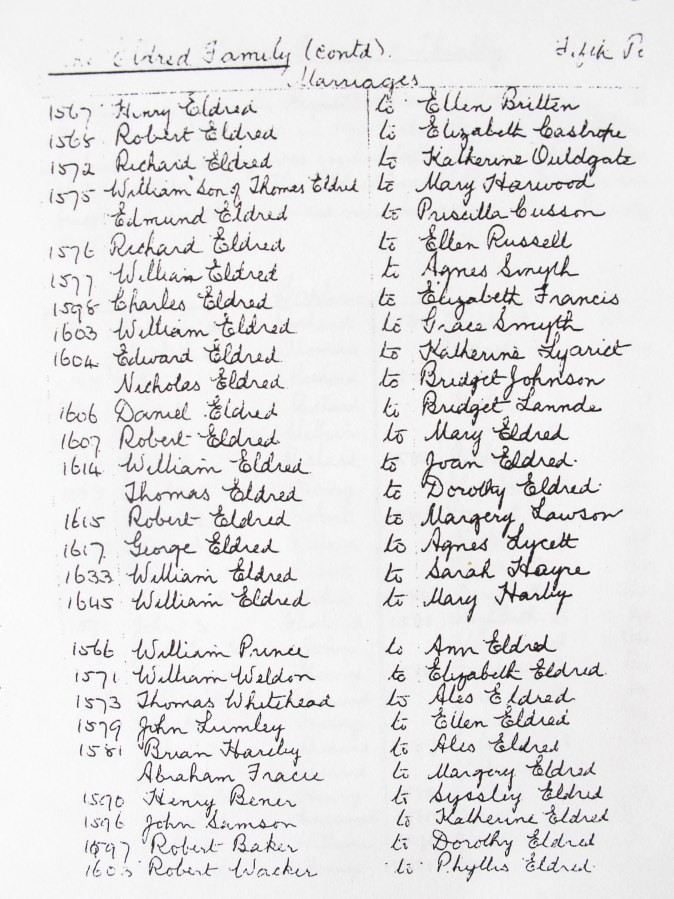 The Eldred Family (contd).
Marriages
1567 Henry Eldred to Ellen Britten
1568 Robert Eldred to Elizabeth Castrope
1572 Richard Eldred to Katherine Ouldgate
1575 William son of Thomas Eldred to Mary Harwood
Edmund Eldred to Priscilla Cusson
1576 Richard Eldred to Ellen Russell
1577 William Eldred to Agnes Smyth
1598 Charles Eldred to Elizabeth Francis
1603 William Eldred to Grace Smyth
1604 Edward Eldred to Katherine
Nicholas Eldred to Bridget Johnson
1606 Daniel Eldred to Bridget Lannde
1607 Robert Eldred to Mary Eldred
1614 William Eldred to Joan Eldred.
Thomas Eldred to Dorothy Eldred.
1615 Robert Eldred to Margery Lawson
1617 George Eldred to Agnes Lycett
1633 William Eldred to Sarah Hayre
1645 William Eldred to Mary Harby
1566 William Prince to Ann Eldred
1571 William Weldon to Elizabeth Eldred.
1573 Thomas Whitehead to Ales Eldred
1579 John Lumley to Ellen Eldred
1581 Brian to Alis Eldred
Abraham Tracie to Margery Eldred
1590 Henry Bener to Syssley Eldred
1596 John Samson to Katherine Eldred
1597 Robert Baker to Dorothy Eldred
1603 Robert Wacker to Phyllis Eldred.